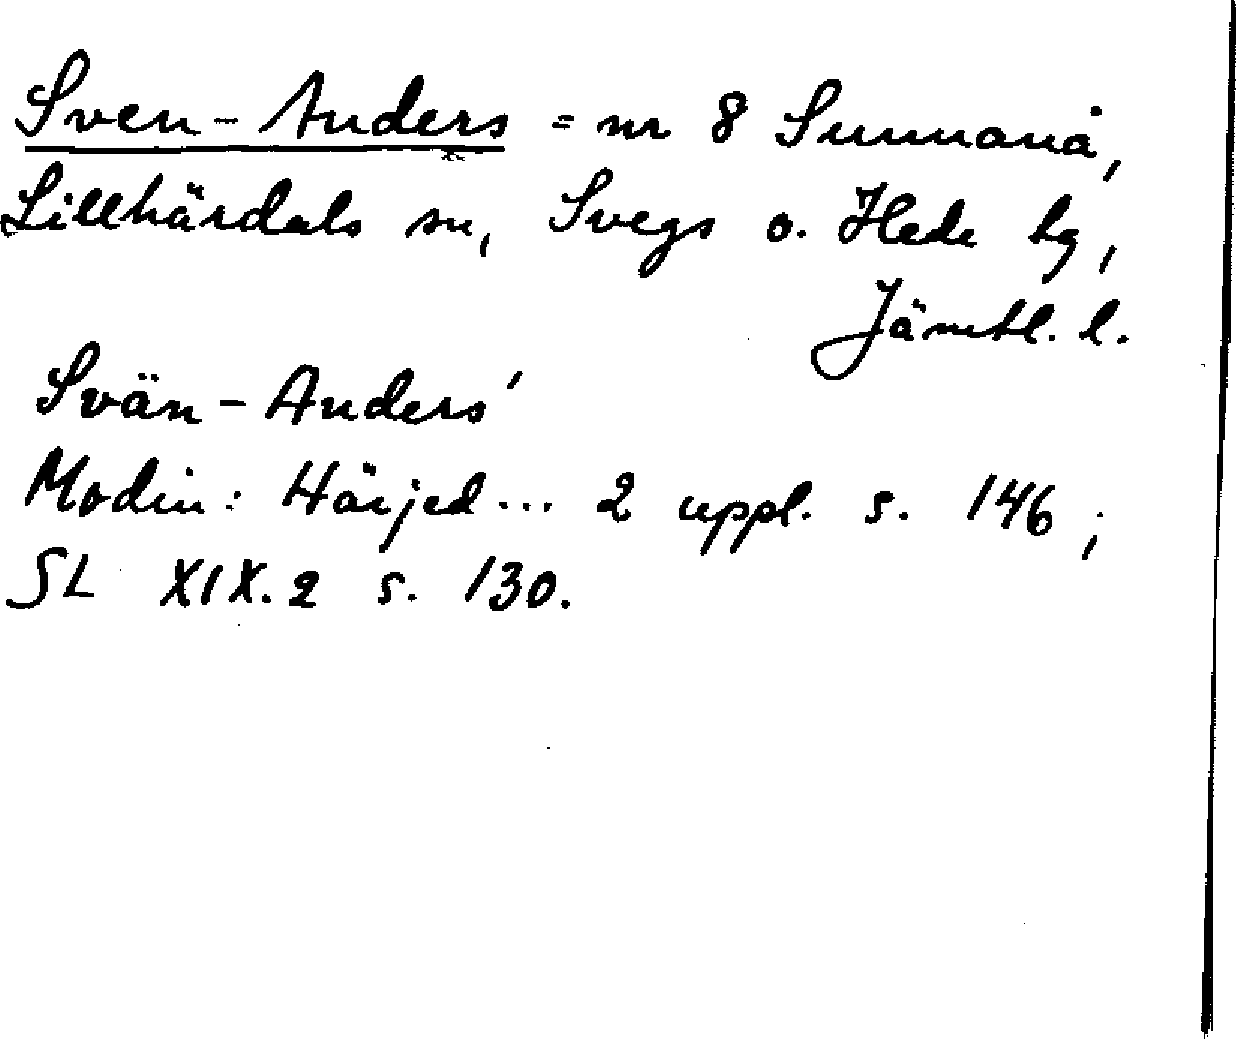 Sven-Anders = nr 8 Sunnanå,
Lillhärdals sn, Svegs o. Hede tg,
Jämtl. l.
Svän-Anders'
Modin: Härjed... 2 uppl. s. 146;
SL XIX.2 s. 130.